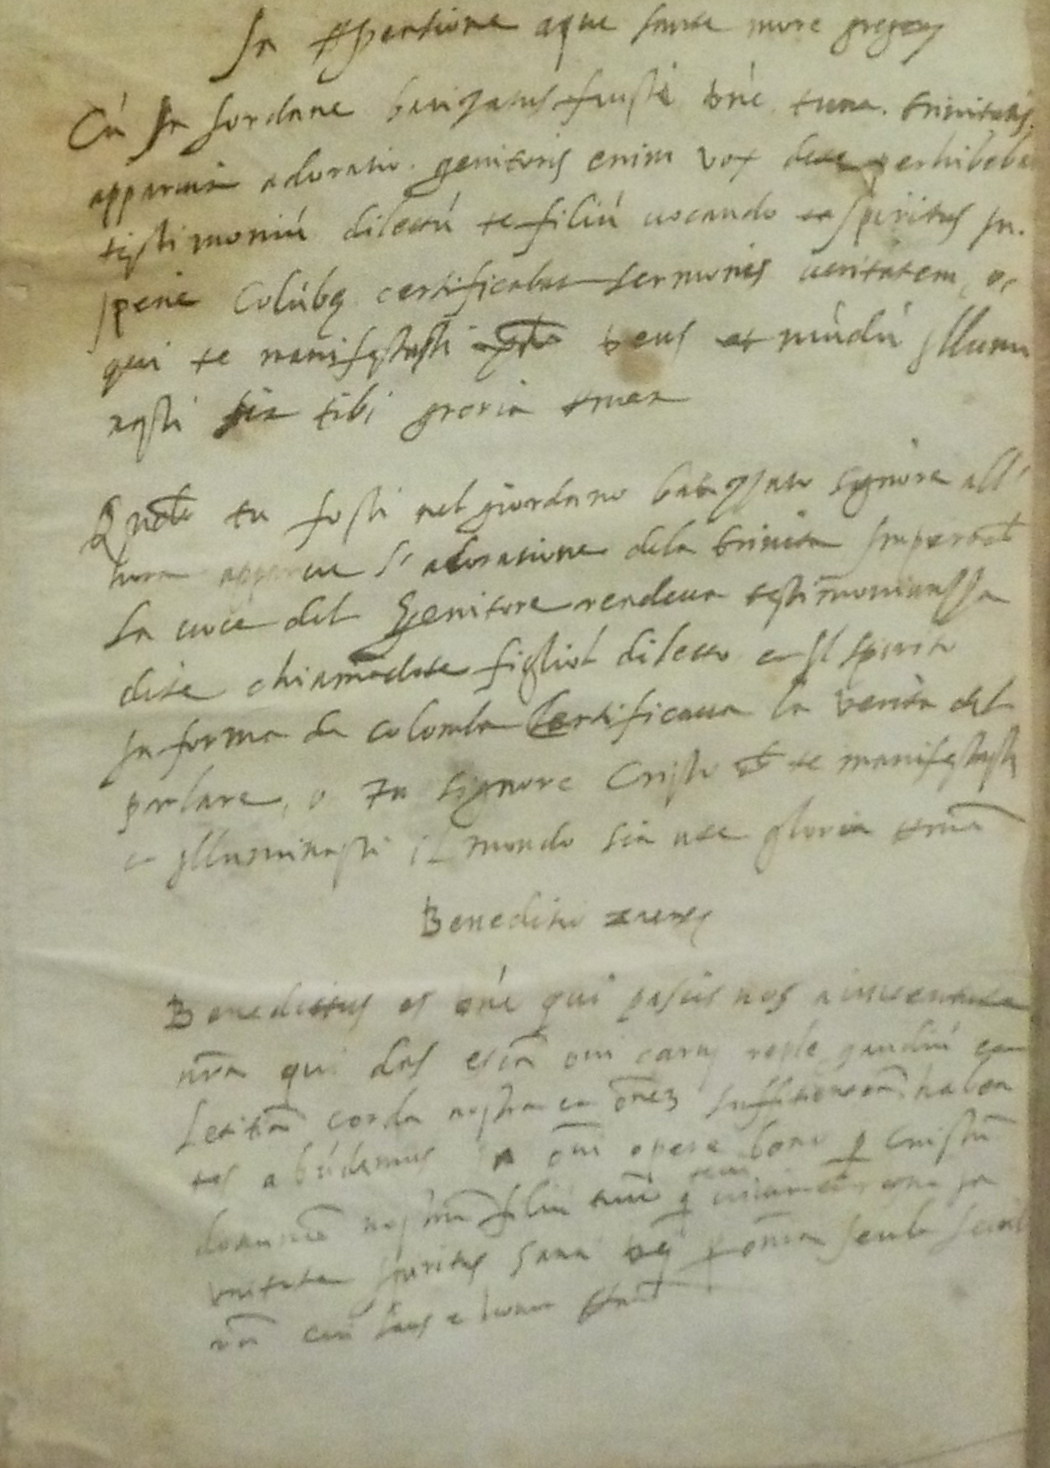 In Aspersione aque sancte more gregorij
Cú In Jordane baptizatus fuisti dn̄e tunc trinitatis
apparuit adoratio. genitoris enim vox perhibeba
testimoniú dilectú te filiú uocando et spiritus In.
spetie Colúbę certificabat sermonis ueritatem, o
qui te manifestasti deus et múdú Illumi
nasti sit tibi groria amen
Quādo tu fosti nel giordano batizato signore all'
hora apparue l' adoratione dela trinita Imperoch̄
La uoce del Genitore rendeua testimonianssa
dite chiamādote figliol diletto e Il spirito
In forma da colomba Certificaua la verita del
parlare, o Tu Signore Cristo ch̄ te manifestasti
e Illuminasti il mondo sia ate gloria amē
Beneditio
Benedictus es dn̄e qui pascis nos a iuuentute
nr̄a qui das escā oni carni reple gaudiú et
letitiā corda nostra ut ōnez suffitientiā haben
tes abúdemus In oni opere bono p Cristū
dominū nostrū filiú tuū tecū In
unitate spiritus Santi
cui laus e honor Amē